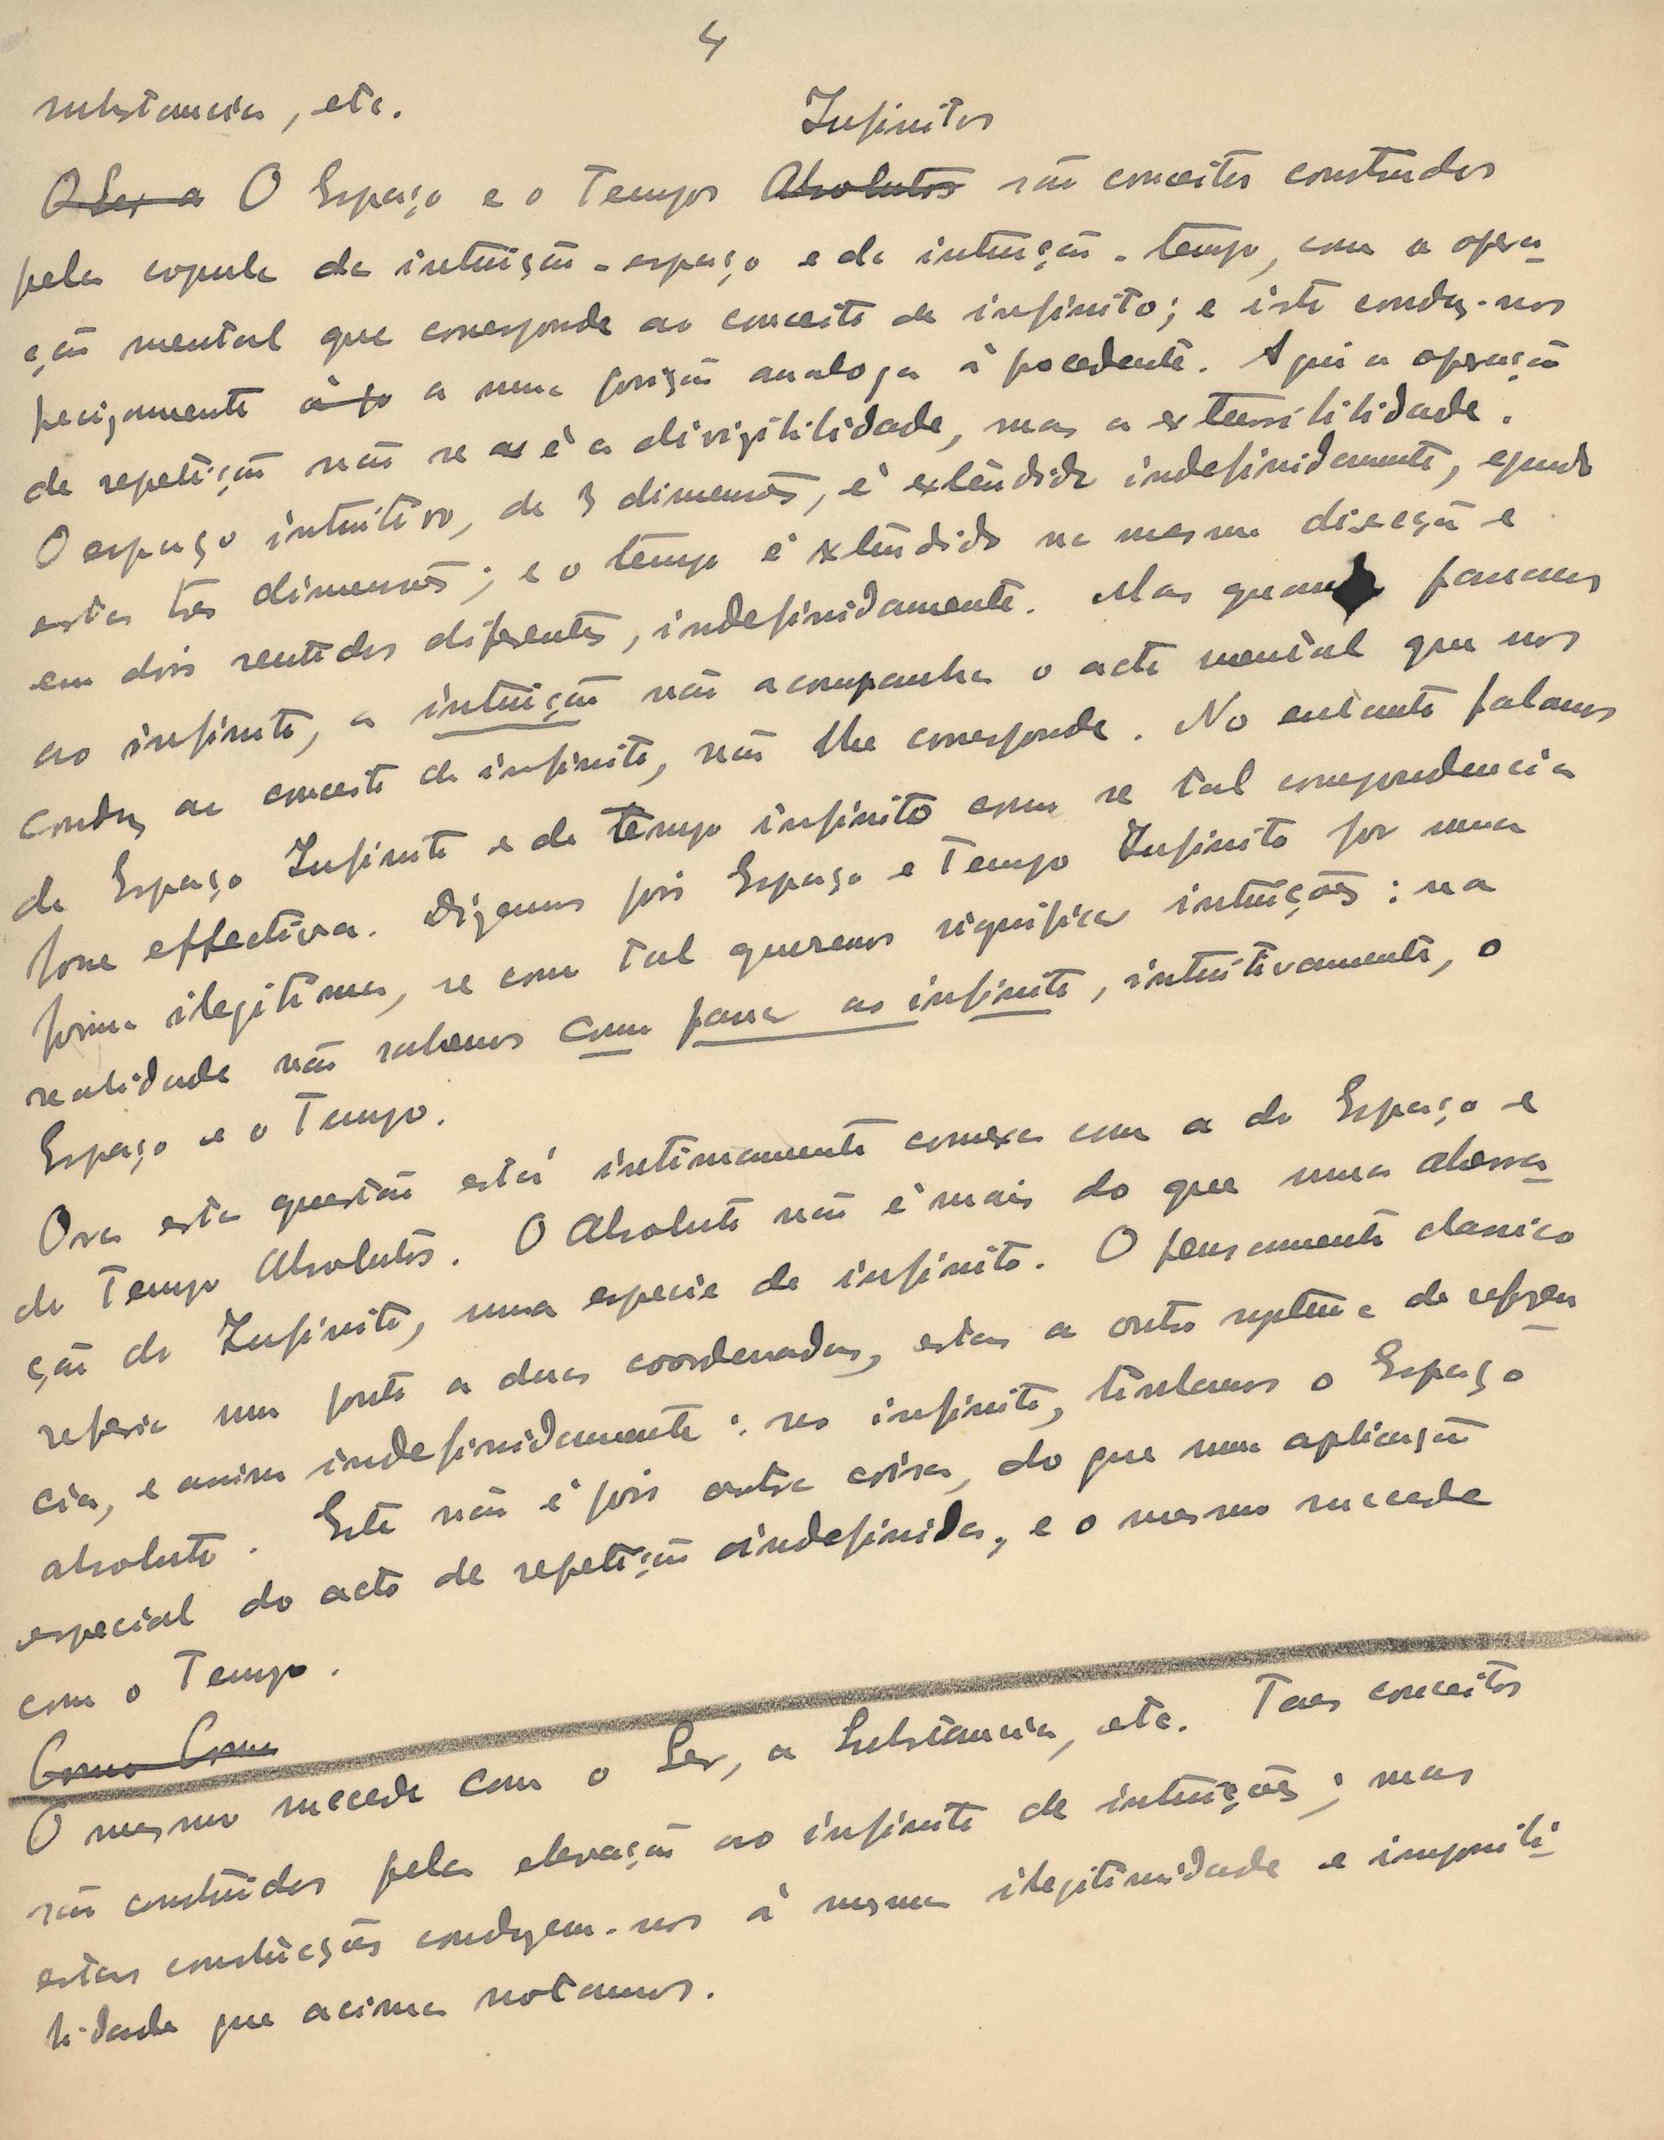 4
substancia, etc.
Infinitos
O Ser a O Espaço e o Tempo Absolutos são conceitos construidos
pela copula da intuição-espaço e da intuição-tempo, com a opera-
ção mental que corresponde ao conceito de infinito; e isto conduz-nos
precizamente á po a uma posição analoga á precedente. Aqui a operação
de repetição não se é a divizibilidade, mas a extensibilidade.
O espaço intuitivo, de 3 dimensões, é extendido indefinidamente, segundo
estas tres dimensões; e o tempo é extendido na mesma direcção e
em dois sentidos diferentes, indefinidamente. Mas quando passamos
ao infinito, a intuição não acompanha o acto mental que nos
conduz ao conceito de infinito, não lhe corresponde. No entanto falamos
de Espaço Infinito e de tempo infinito como se tal correspondencia
fosse effectiva. Dizemos pois Espaço e Tempo Infinito por uma
forma ilegitima, se com tal queremos significar intuições: na
realidade não sabemos como passar ao infinito, intuitivamente, o
Espaço e o Tempo.
Ora esta questão está intimamente conexa com a do Espaço e
do Tempo Absolutos. O Absoluto não é mais do que uma
ção do Infinito, uma especie de infinito. O pensamento classico
referia um ponto a duas coordenadas, estas a outro systema de referen-
cia, e assim indefinidamente: no infinito, tinhamos o Espaço
absoluto. Este não é pois outra coisa, do que uma aplicação
especial do acto de repetição indefinida, e o mesmo succede
com o Tempo.
Como Como
O mesmo succede com o Ser, a Substancia, etc. Taes conceitos
são construidos pela elevação ao infinito de intuições; mas
estas construcções conduzem-nos á mesma ilegitimidade e impossibi-
lidade que acima notamos.